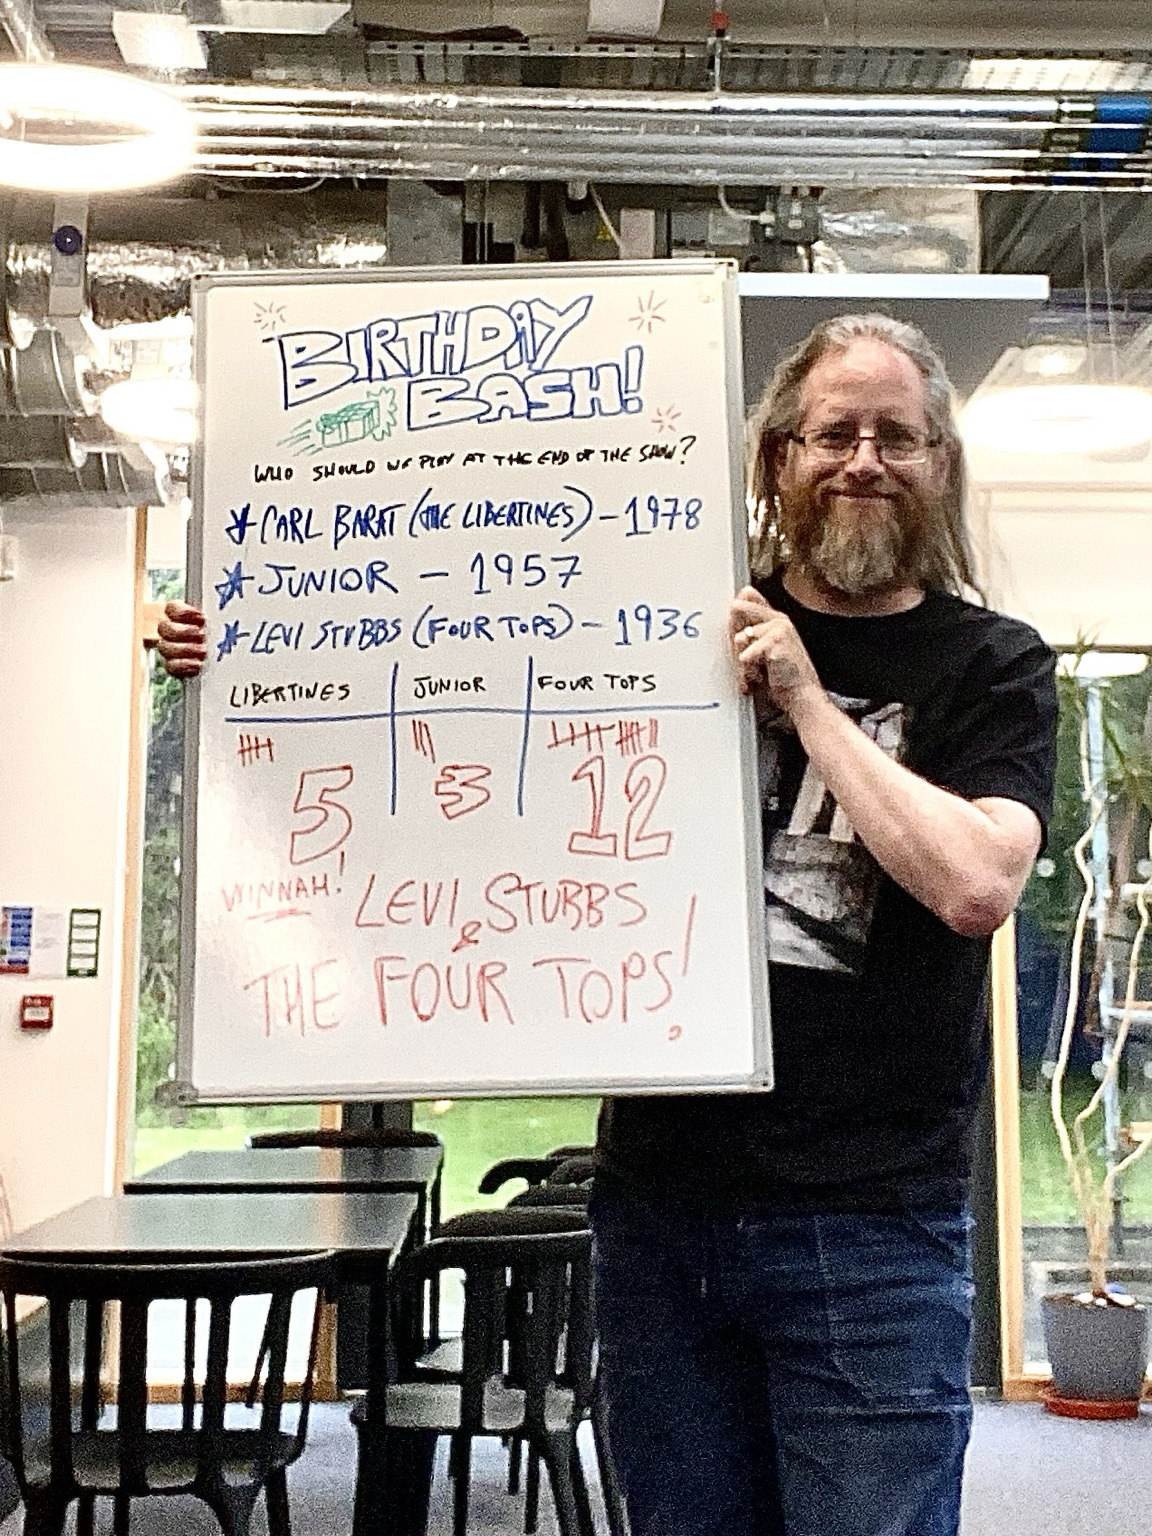 BIRTHDAY
BASH!
WHO SHOULD WE PLAY AT THE END OF THE SHOW?
CARL BARAT (THE LIBERTINES) – 1978
JUNIOR – 1957
LEVI STUBBS (FOUR TOPS) – 1936
LIBERTINES JUNIOR FOUR TOPS
5 3 12
WINNAH! LEVI STUBBS
&
THE FOUR TOPS!